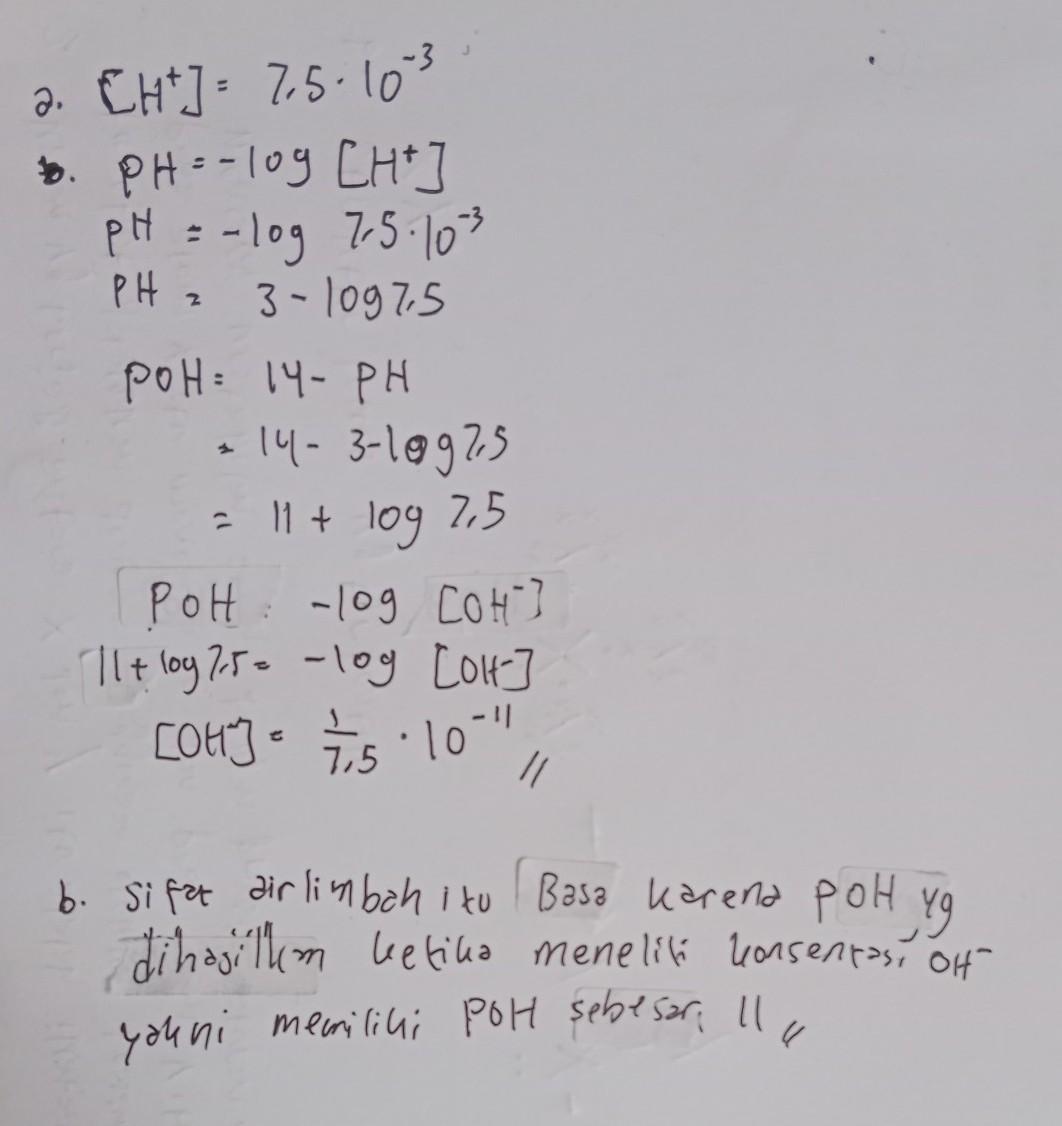 a. [H⁺] = 7,5 · 10⁻³
b. pH = -log [H⁺]
pH = -log 7,5 · 10⁻³
PH = 3 - log 7,5
POH = 14 - PH
= 14 - 3 - log 7,5
= 11 + log 7,5
POH : -log [OH⁻]
11 + log 7,5 = -log [OH⁻]
[OH⁻] = 1/7,5 · 10⁻¹¹ //
b. Sifat air limbah itu Basa karena POH yg
dihasilkan ketika meneliti konsentrasi OH⁻
yakni memiliki POH sebesar 11 //